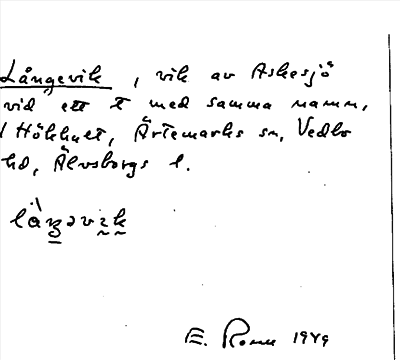 Långevik, vik av Askesjö
vid ett t med samma namn,
i Hökhult, Ärtemarks sn, Vedbo
hd, Älvsborgs l.
E. Rosen 1949